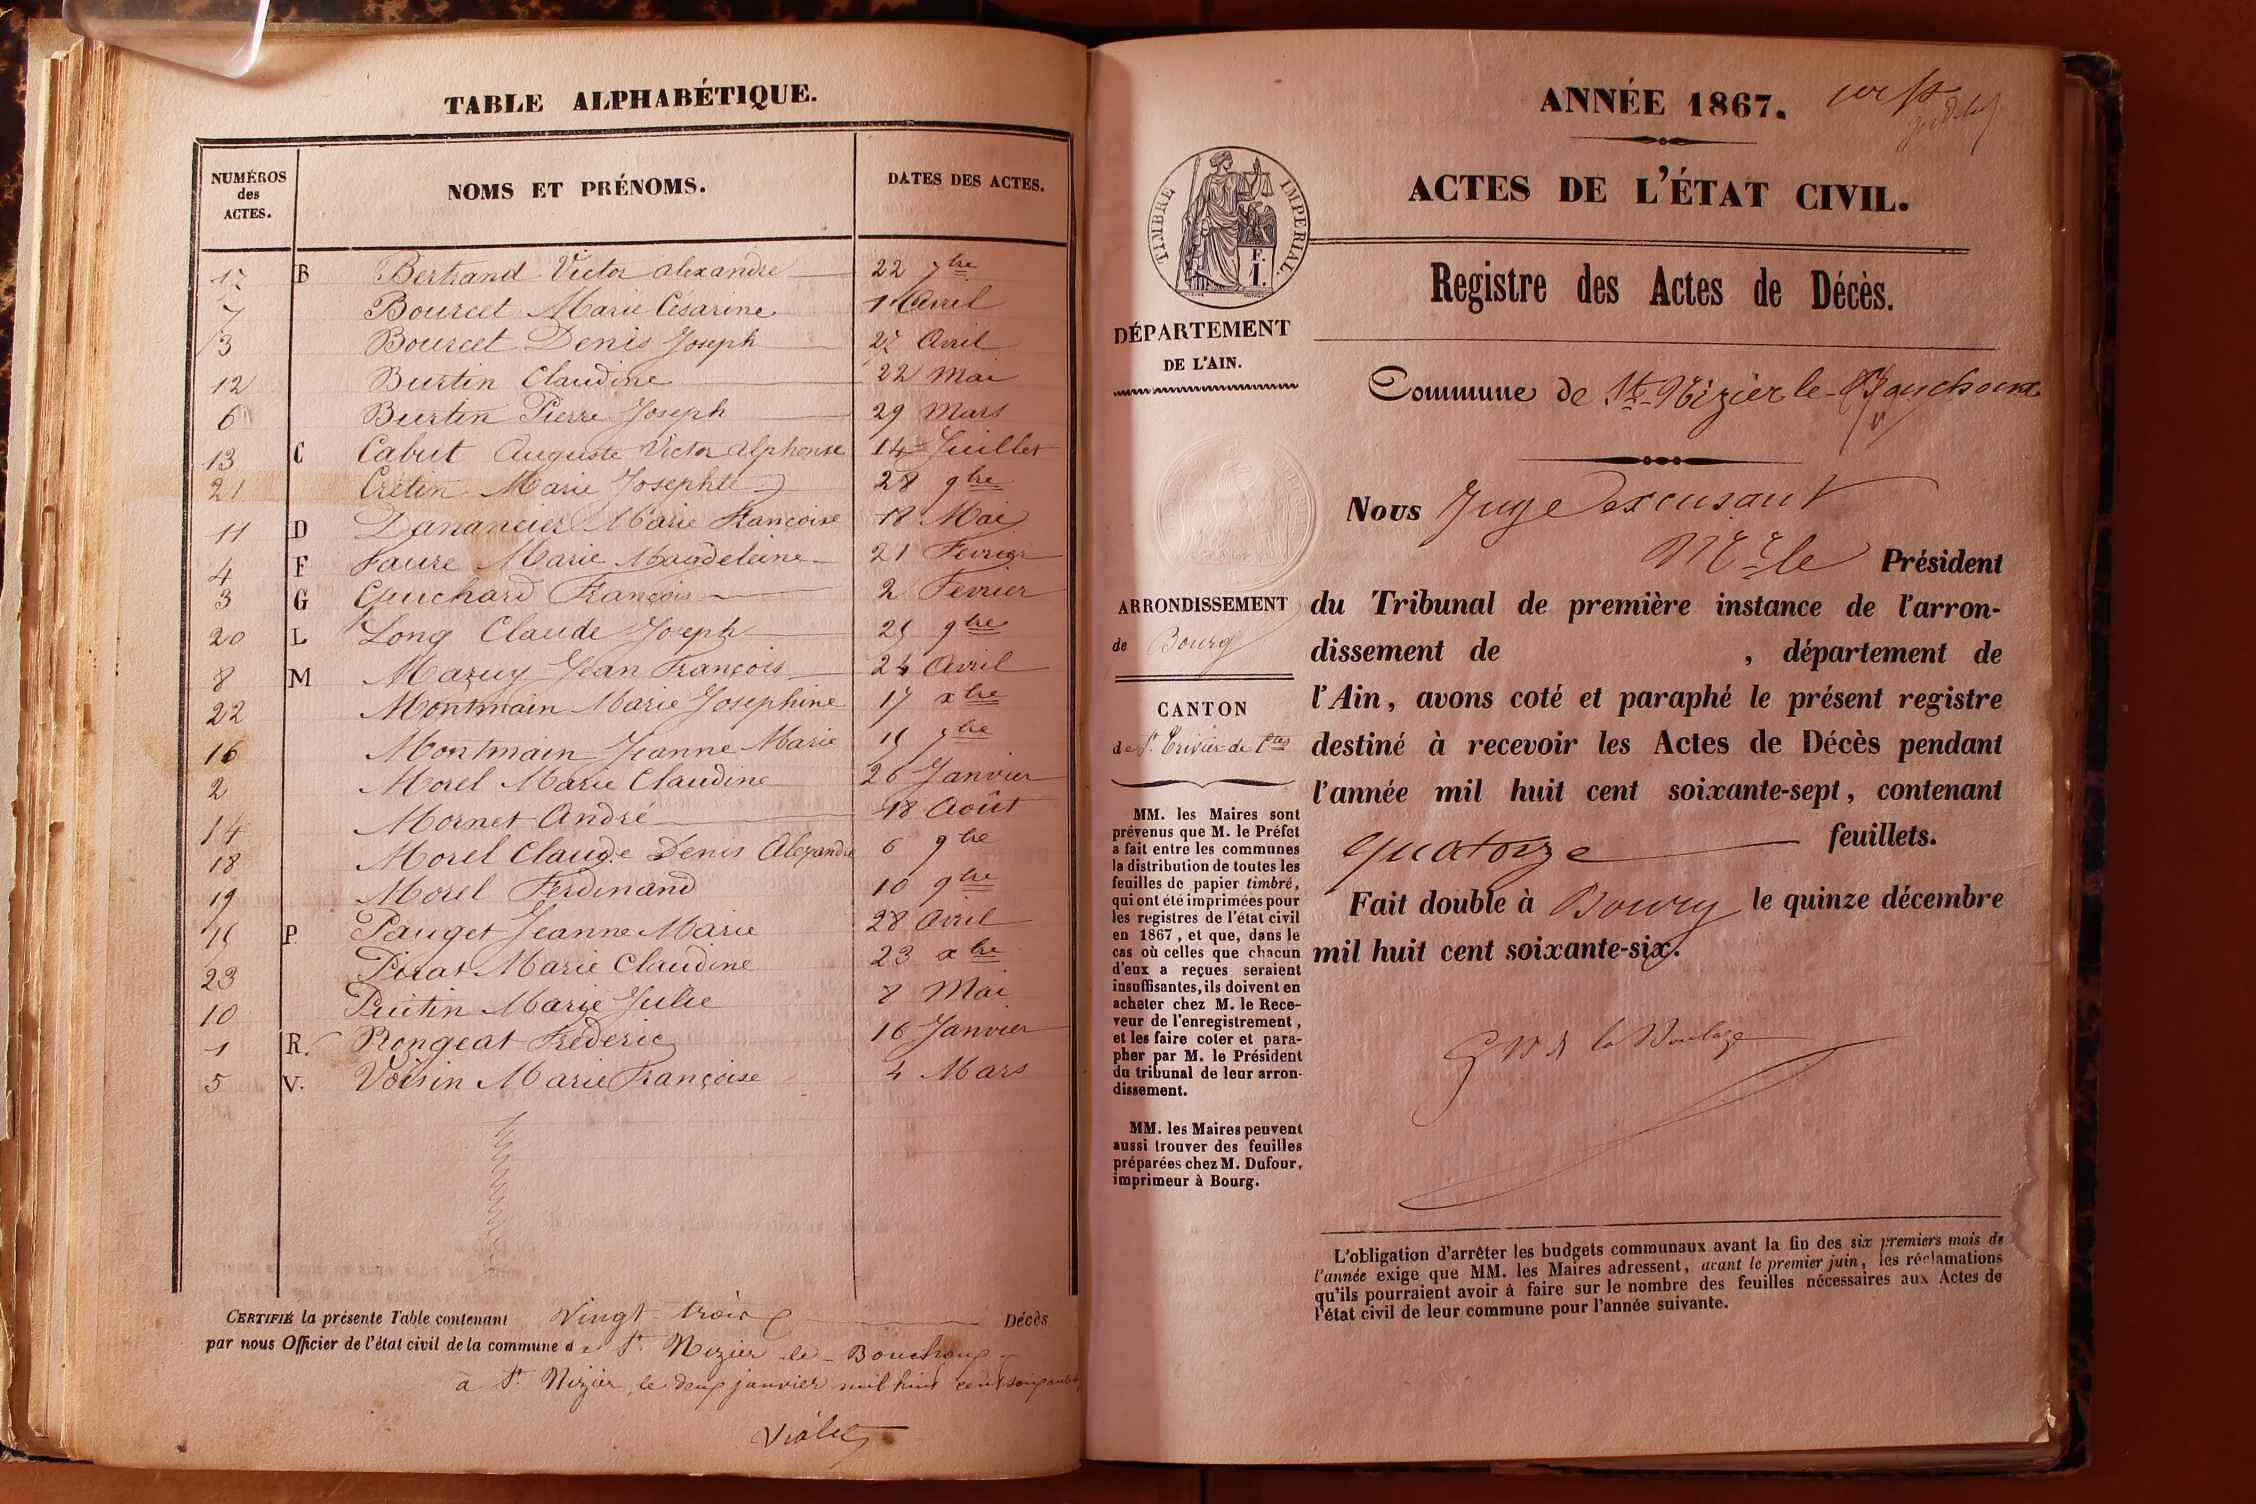 TABLE ALPHABÉTIQUE.
NUMÉROS des ACTES.
NOMS ET PRÉNOMS.
DATES DES ACTES.
17 B Bertrand Victor alexandre 22 7bre
7 Bourcet Marie Césarine 1 Avril
Bourcet Denis Joseph 27 Avril
12 Burtin Claudine 22 Mai
6 Burtin Pierre Joseph 29 Mars
13 C Cabut Auguste Victor alphonse 14 Juillet
21 Crétin Marie Josephte 28 9bre
11 D Danancier Marie Françoise 18 Mai
4 F Faure Marie Magdeleine 21 Février
3 G Guichard François 2 Fevrier
20 L Long Claude Joseph 9bre
8 M Mazuy Jean François 24 Avril
22 Montmain Marie Josephine 17 xbre
16 Montmain Jeanne Marie 7bre
2 Morel Marie Claudine 26 Janvier
14 Mornet André 18 Août
18 Morel Claude Denis Alexandre 6 9bre
19 Morel Ferdinand 10 9bre
P Pauget Jeanne Marie 28 Avril
23 Pirat Marie Claudine 23 xbre
10 Putin Marie Julie 8 Mai
1 R. Rongeat Fréderic 16 Janvier
5 V. Voisin Marie Françoise 4 Mars
CERTIFIÉ la présente Table contenant Vingt trois Décès
par nous Officier de l'état civil de la commune de St Nizier le Bouchoux
à St Nizier, le deux janvier mil huit cent soixante
Violet
ANNÉE 1867.
ACTES DE L'ÉTAT CIVIL.
TIMBRE IMPERIAL.
F.
1.
Registre des Actes de Décès.
DÉPARTEMENT
DE L'AIN.
Commune de St-Nizier le Bouchoux
Nous Juge excusant
Mr le Président
du Tribunal de première instance de l'arron-
dissement de , département de
l'Ain, avons coté et paraphé le présent registre
destiné à recevoir les Actes de Décès pendant
l'année mil huit cent soixante-sept, contenant
quatorze feuillets.
Fait double à Bourg le quinze décembre
mil huit cent soixante-six.
ARRONDISSEMENT
de Bourg
CANTON
de St. Trivier de Ctes
MM. les Maires sont
prévenus que M. le Préfet
a fait entre les communes
la distribution de toutes les
feuilles de papier timbré,
qui ont été imprimées pour
les registres de l'état civil
en 1867, et que, dans le
cas où celles que chacun
d'eux a reçues seraient
insuffisantes, ils doivent en
acheter chez M. le Rece-
veur de l'enregistrement,
et les faire coter et para-
pher par M. le Président
du tribunal de leur arron-
dissement.
MM. les Maires peuvent
aussi trouver des feuilles
préparées chez M. Dufour,
imprimeur à Bourg.
L'obligation d'arrêter les budgets communaux avant la fin des six premiers mois de
l'année exige que MM. les Maires adressent, avant le premier juin, les réclamations
qu'ils pourraient avoir à faire sur le nombre des feuilles nécessaires aux Actes de
l'état civil de leur commune pour l'année suivante.